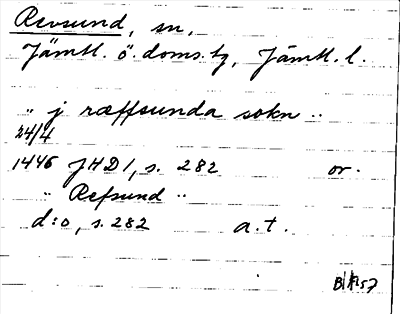 Revsund, sn,
Jämtl. ö. doms.tg, Jämtl. l.
" j ræffsunda sokn ..
24/4
1446 JHD 1, s. 282 or.
" Refsund "
d:o, s. 282 a.t.